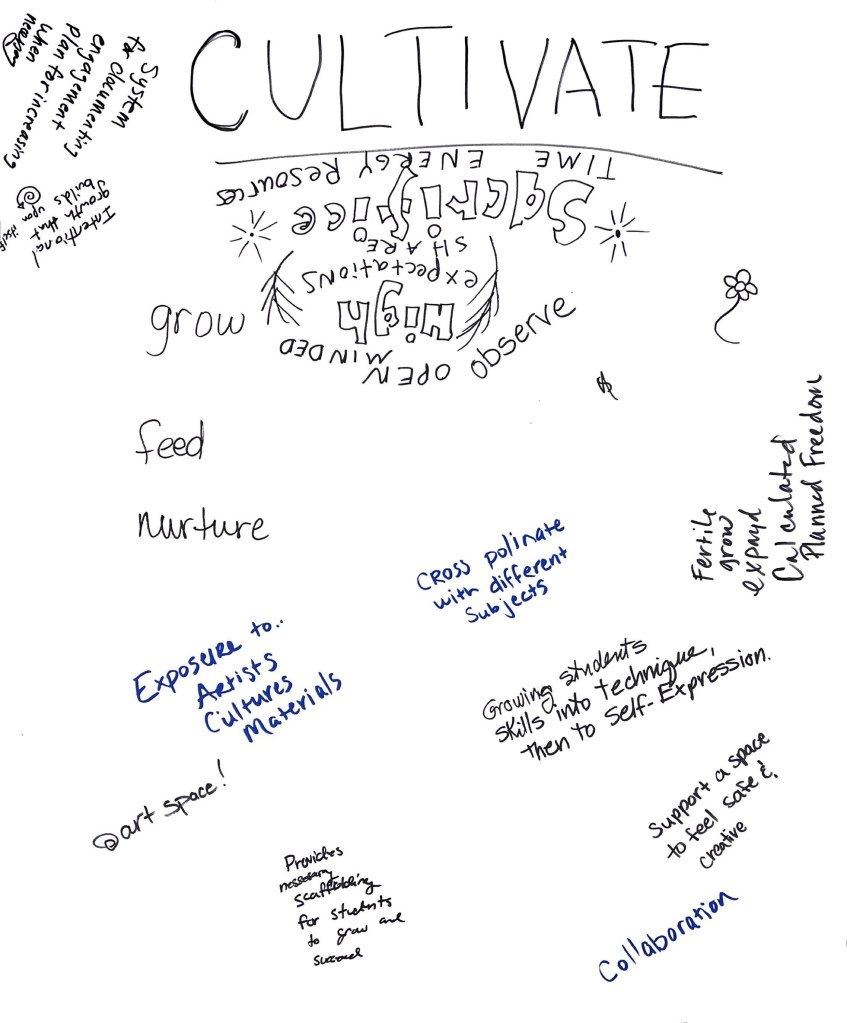 CULTIVATE
System
for documenting
engagement
plan for increasing
when
necessary
Intentional
growth that
builds upon
itself
TIME ENERGY Resources
Sacrifice
SHARE
expectations
High
OPEN MINDED
observe
grow
feed
nurture
Fertile
grow
expand
Calculated
Planned Freedom
CROSS polinate
with different
Subjects
Exposure to..
Artists
Cultures
Materials
Growing students
skills into technique,
then to Self-Expression.
@art space!
Support a space
to feel safe &
creative
Provides
nessesary
scaffolding
for students
to grow and
succeed
Collaboration